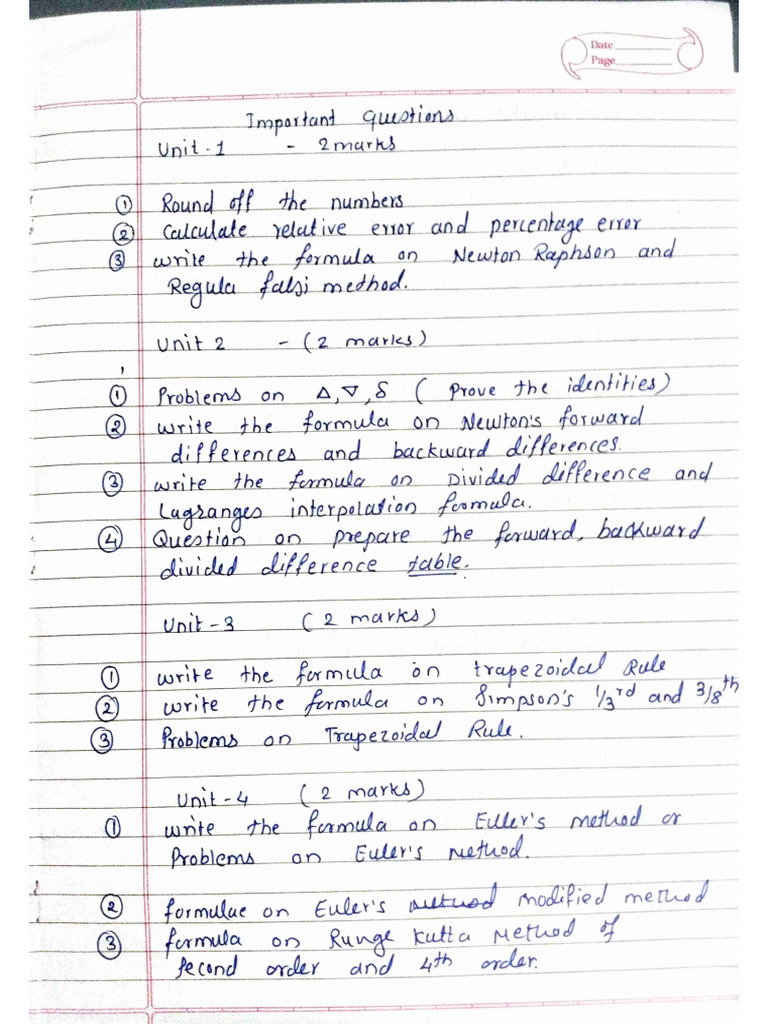 Date
Page
Important Questions
Unit-1 - 2marks
① Round off the numbers
② Calculate relative error and percentage error
③ write the formula on Newton Raphson and
Regula falsi method.
Unit 2 - (2 marks)
① Problems on Δ, ∇, δ ( Prove the identities)
② write the formula on Newton's forward
differences and backward differences.
③ write the formula on Divided difference and
Lagranges interpolation formula.
④ Question on prepare the forward, backward
divided difference table.
Unit-3 (2 marks)
① write the formula on trapezoidal Rule
② write the formula on Simpson's 1/3rd and 3/8th
③ Problems on Trapezoidal Rule.
Unit-4 (2 marks)
① write the formula on Euler's method or
Problems on Euler's Method.
② formulae on Euler's method modified method
③ formula on Runge Kutta Method of
Second order and 4th order.